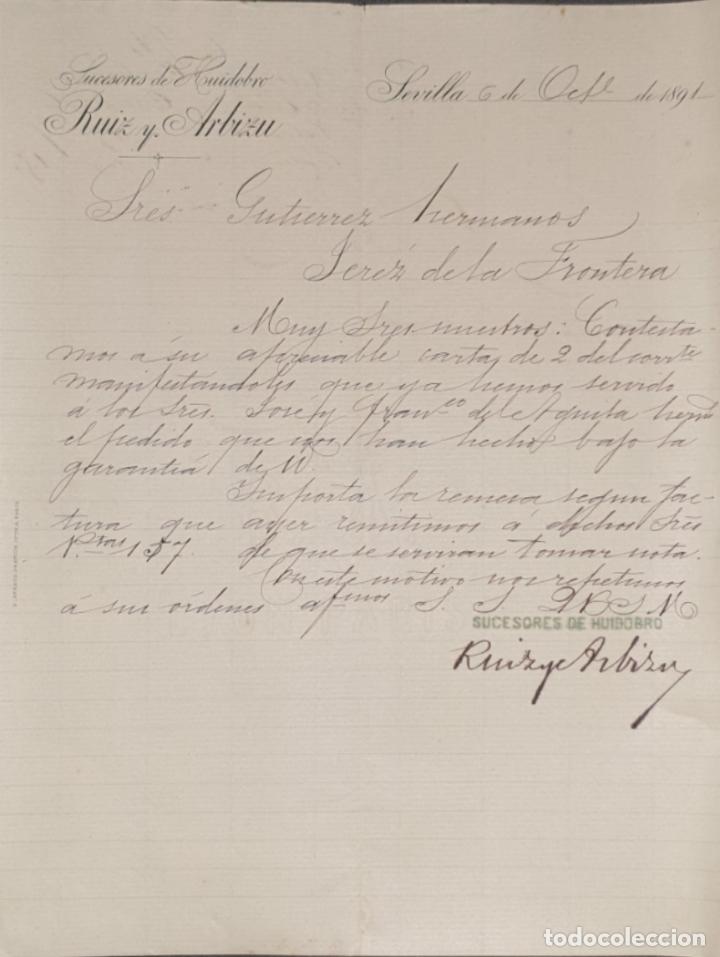 Sucesores de Huidobro
Ruiz y Arbizu
Sevilla 6 de Octe de 1891
Sres Gutierrez hermanos
Jeréz de la Frontera
Muy Sres nuestros: Contesta-
mos á su apreciable carta, de 2 del corrte
manifestándoles que ya hemos servido
á los Sres. José y Franco del Aguila herm
el pedido que nos han hecho bajo la
garantiá de V.
Importa la remesa segun fac-
tura que ayer remitimos á dichos Sres
Ptas 157. de que se serviran tomar nota.
Con este motivo nos repetimos
á sus órdenes afmos S. S. Q B S M
SUCESORES DE HUIDOBRO
Ruiz y Arbizu
todocoleccion